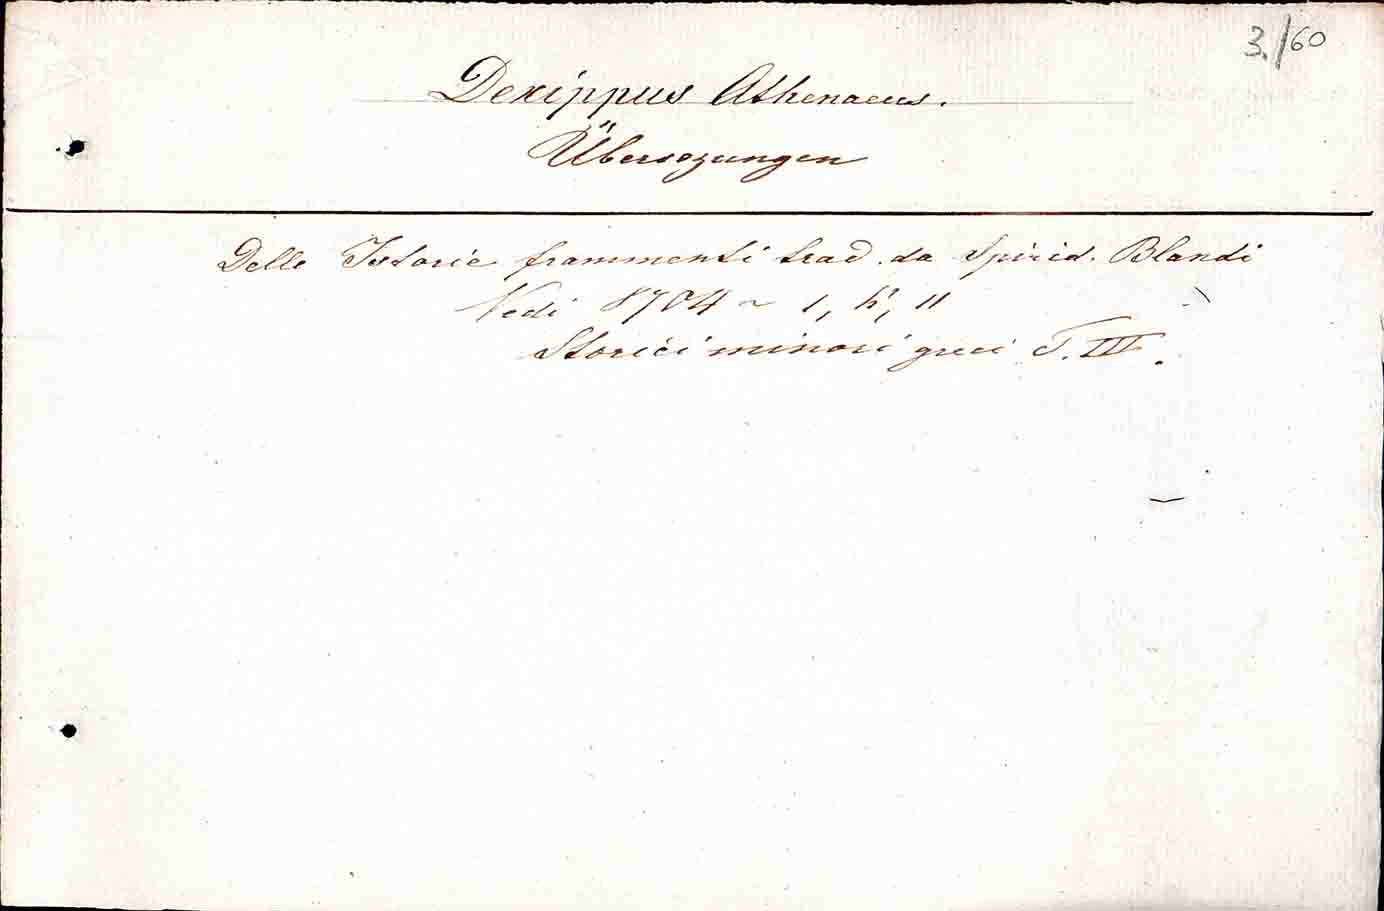 3./60
Dexippus Athenaeus.
Übersezungen
Delle Istorie frammenti trad. da Spirid. Blandi
Vedi 8704 ~ 1, h', 11
Storici minori greci T. III.